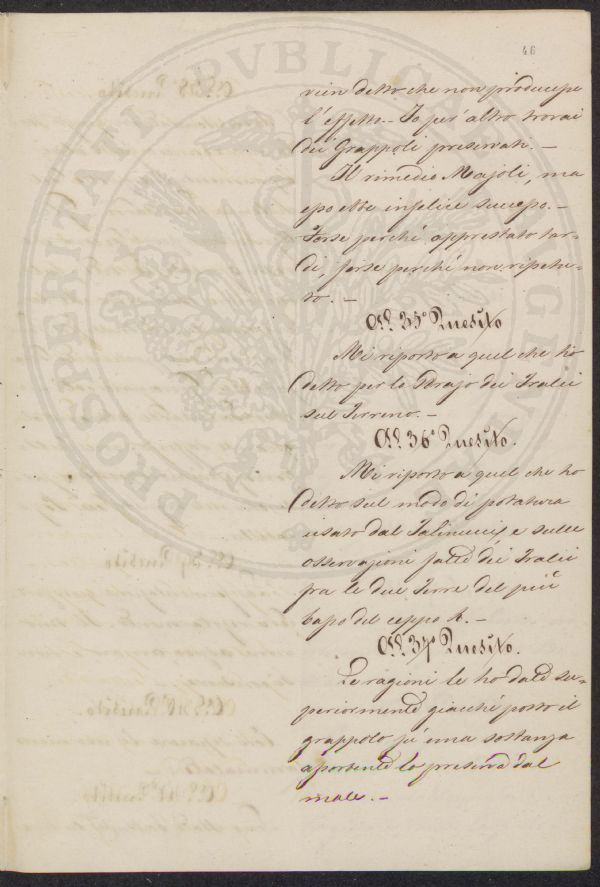 46
vien detto che non producesse
l'effetto - Io per altro trovai
dei Grappoli preservati. -
Il rimedio Majoli, ma
esso ebbe infelice successo. -
Forse perché apprestato tar=
di, forse perché non ripetu=
to. -
All. 35° Quesito
Mi riporto a quel che ho
detto per lo sdrajo dei Tralci
sul Terreno. -
All. 36° Quesito.
Mi riporto a quel che ho
detto sul modo di potatura
usato dal e sulle
osservazioni fatte dei Tralci
fra le due Terre del più
basso del ceppo &. -
All. 37° Quesito.
Le ragioni le ho date su=
periormente giacché posto il
grappolo su una sostanza
assorbente lo preserva dal
male. -
PROSPERITATI PUBLICAE AUGENDAE